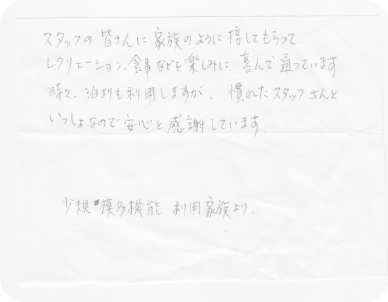 スタッフの皆さんに家族のように接してもらって
レクリエーション、食事などを楽しみに喜んで通っています。
時々、泊りも利用しますが、慣れたスタッフさんと
いっしょなので安心と感謝しています。
少規模多機能 利用家族より。